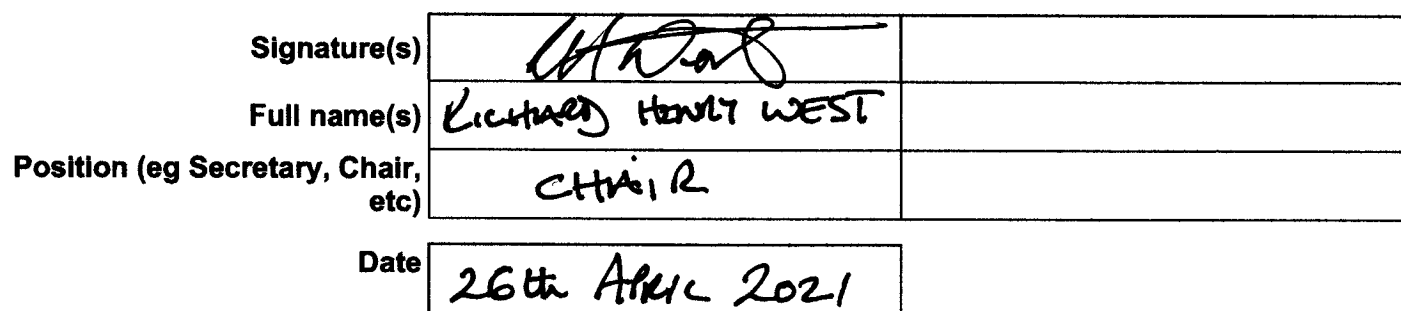 Signature(s)
Full name(s) RICHARD HENRY WEST
Position (eg Secretary, Chair,
etc) CHAIR
Date 26th APRIL 2021